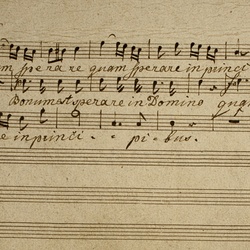 m sperare quam sperare in princi
Bonum est sperare in Domino quam
e in princi - - pi - bus.